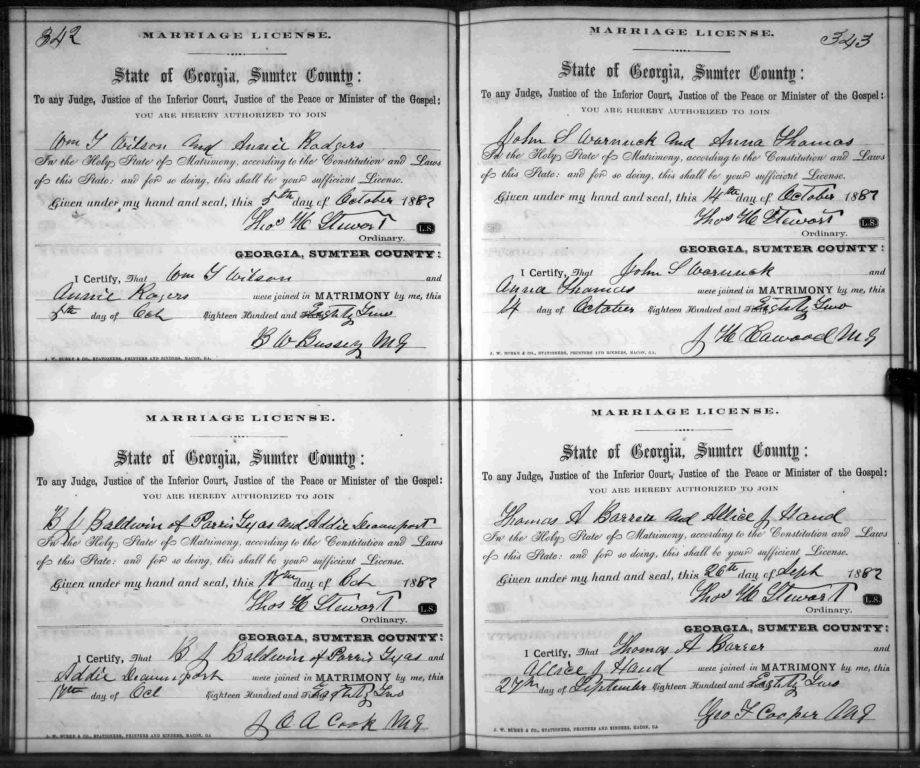 342
MARRIAGE LICENSE.
State of Georgia, Sumter County:
To any Judge, Justice of the Inferior Court, Justice of the Peace or Minister of the Gospel:
YOU ARE HEREBY AUTHORIZED TO JOIN
Wm T Wilson and Annie Rodgers
In the Holy State of Matrimony, according to the Constitution and Laws
of this State: and for so doing, this shall be your sufficient License.
Given under my hand and seal, this 5th day of October 1882
Thos H Stewart L.S.
Ordinary.
GEORGIA, SUMTER COUNTY:
I Certify, That Wm T Wilson and
Annie Rogers were joined in MATRIMONY by me, this
5th day of Oct Eighteen Hundred and Eighty Two
B W Bussey M G
J. W. BURKE & CO., STATIONERS, PRINTERS AND BINDERS, MACON, GA.
MARRIAGE LICENSE.
State of Georgia, Sumter County:
To any Judge, Justice of the Inferior Court, Justice of the Peace or Minister of the Gospel:
YOU ARE HEREBY AUTHORIZED TO JOIN
B J Baldwin of Parris Texas and Addie Deavenport
In the Holy State of Matrimony, according to the Constitution and Laws
of this State: and for so doing, this shall be your sufficient License.
Given under my hand and seal, this day of Oct 1882
Thos H Stewart L.S.
Ordinary.
GEORGIA, SUMTER COUNTY:
I Certify, That B J Baldwin of Parris Texas and
Addie were joined in MATRIMONY by me, this
day of Oct Eighteen Hundred and Eighty Two
J O A Cook M G
J. W. BURKE & CO., STATIONERS, PRINTERS AND BINDERS, MACON, GA.
343
MARRIAGE LICENSE.
State of Georgia, Sumter County:
To any Judge, Justice of the Inferior Court, Justice of the Peace or Minister of the Gospel:
YOU ARE HEREBY AUTHORIZED TO JOIN
John S Warnuck and Anna Thomas
In the Holy State of Matrimony, according to the Constitution and Laws
of this State: and for so doing, this shall be your sufficient License.
Given under my hand and seal, this 14th day of October 1882
Thos H Stewart L.S.
Ordinary.
GEORGIA, SUMTER COUNTY:
I Certify, That John S Warnuck and
Anna Thomas were joined in MATRIMONY by me, this
14 day of October Eighteen Hundred and Eighty Two
J H M G
J. W. BURKE & CO., STATIONERS, PRINTERS AND BINDERS, MACON, GA.
MARRIAGE LICENSE.
State of Georgia, Sumter County:
To any Judge, Justice of the Inferior Court, Justice of the Peace or Minister of the Gospel:
YOU ARE HEREBY AUTHORIZED TO JOIN
Thomas A and Allice J Hand
In the Holy State of Matrimony, according to the Constitution and Laws
of this State: and for so doing, this shall be your sufficient License.
Given under my hand and seal, this 26th day of Sept 1882
Thos H Stewart L.S.
Ordinary.
GEORGIA, SUMTER COUNTY:
I Certify, That Thomas A and
Allice J Hand were joined in MATRIMONY by me, this
27th day of September Eighteen Hundred and Eighty Two
Geo F Cooper M G
J. W. BURKE & CO., STATIONERS, PRINTERS AND BINDERS, MACON, GA